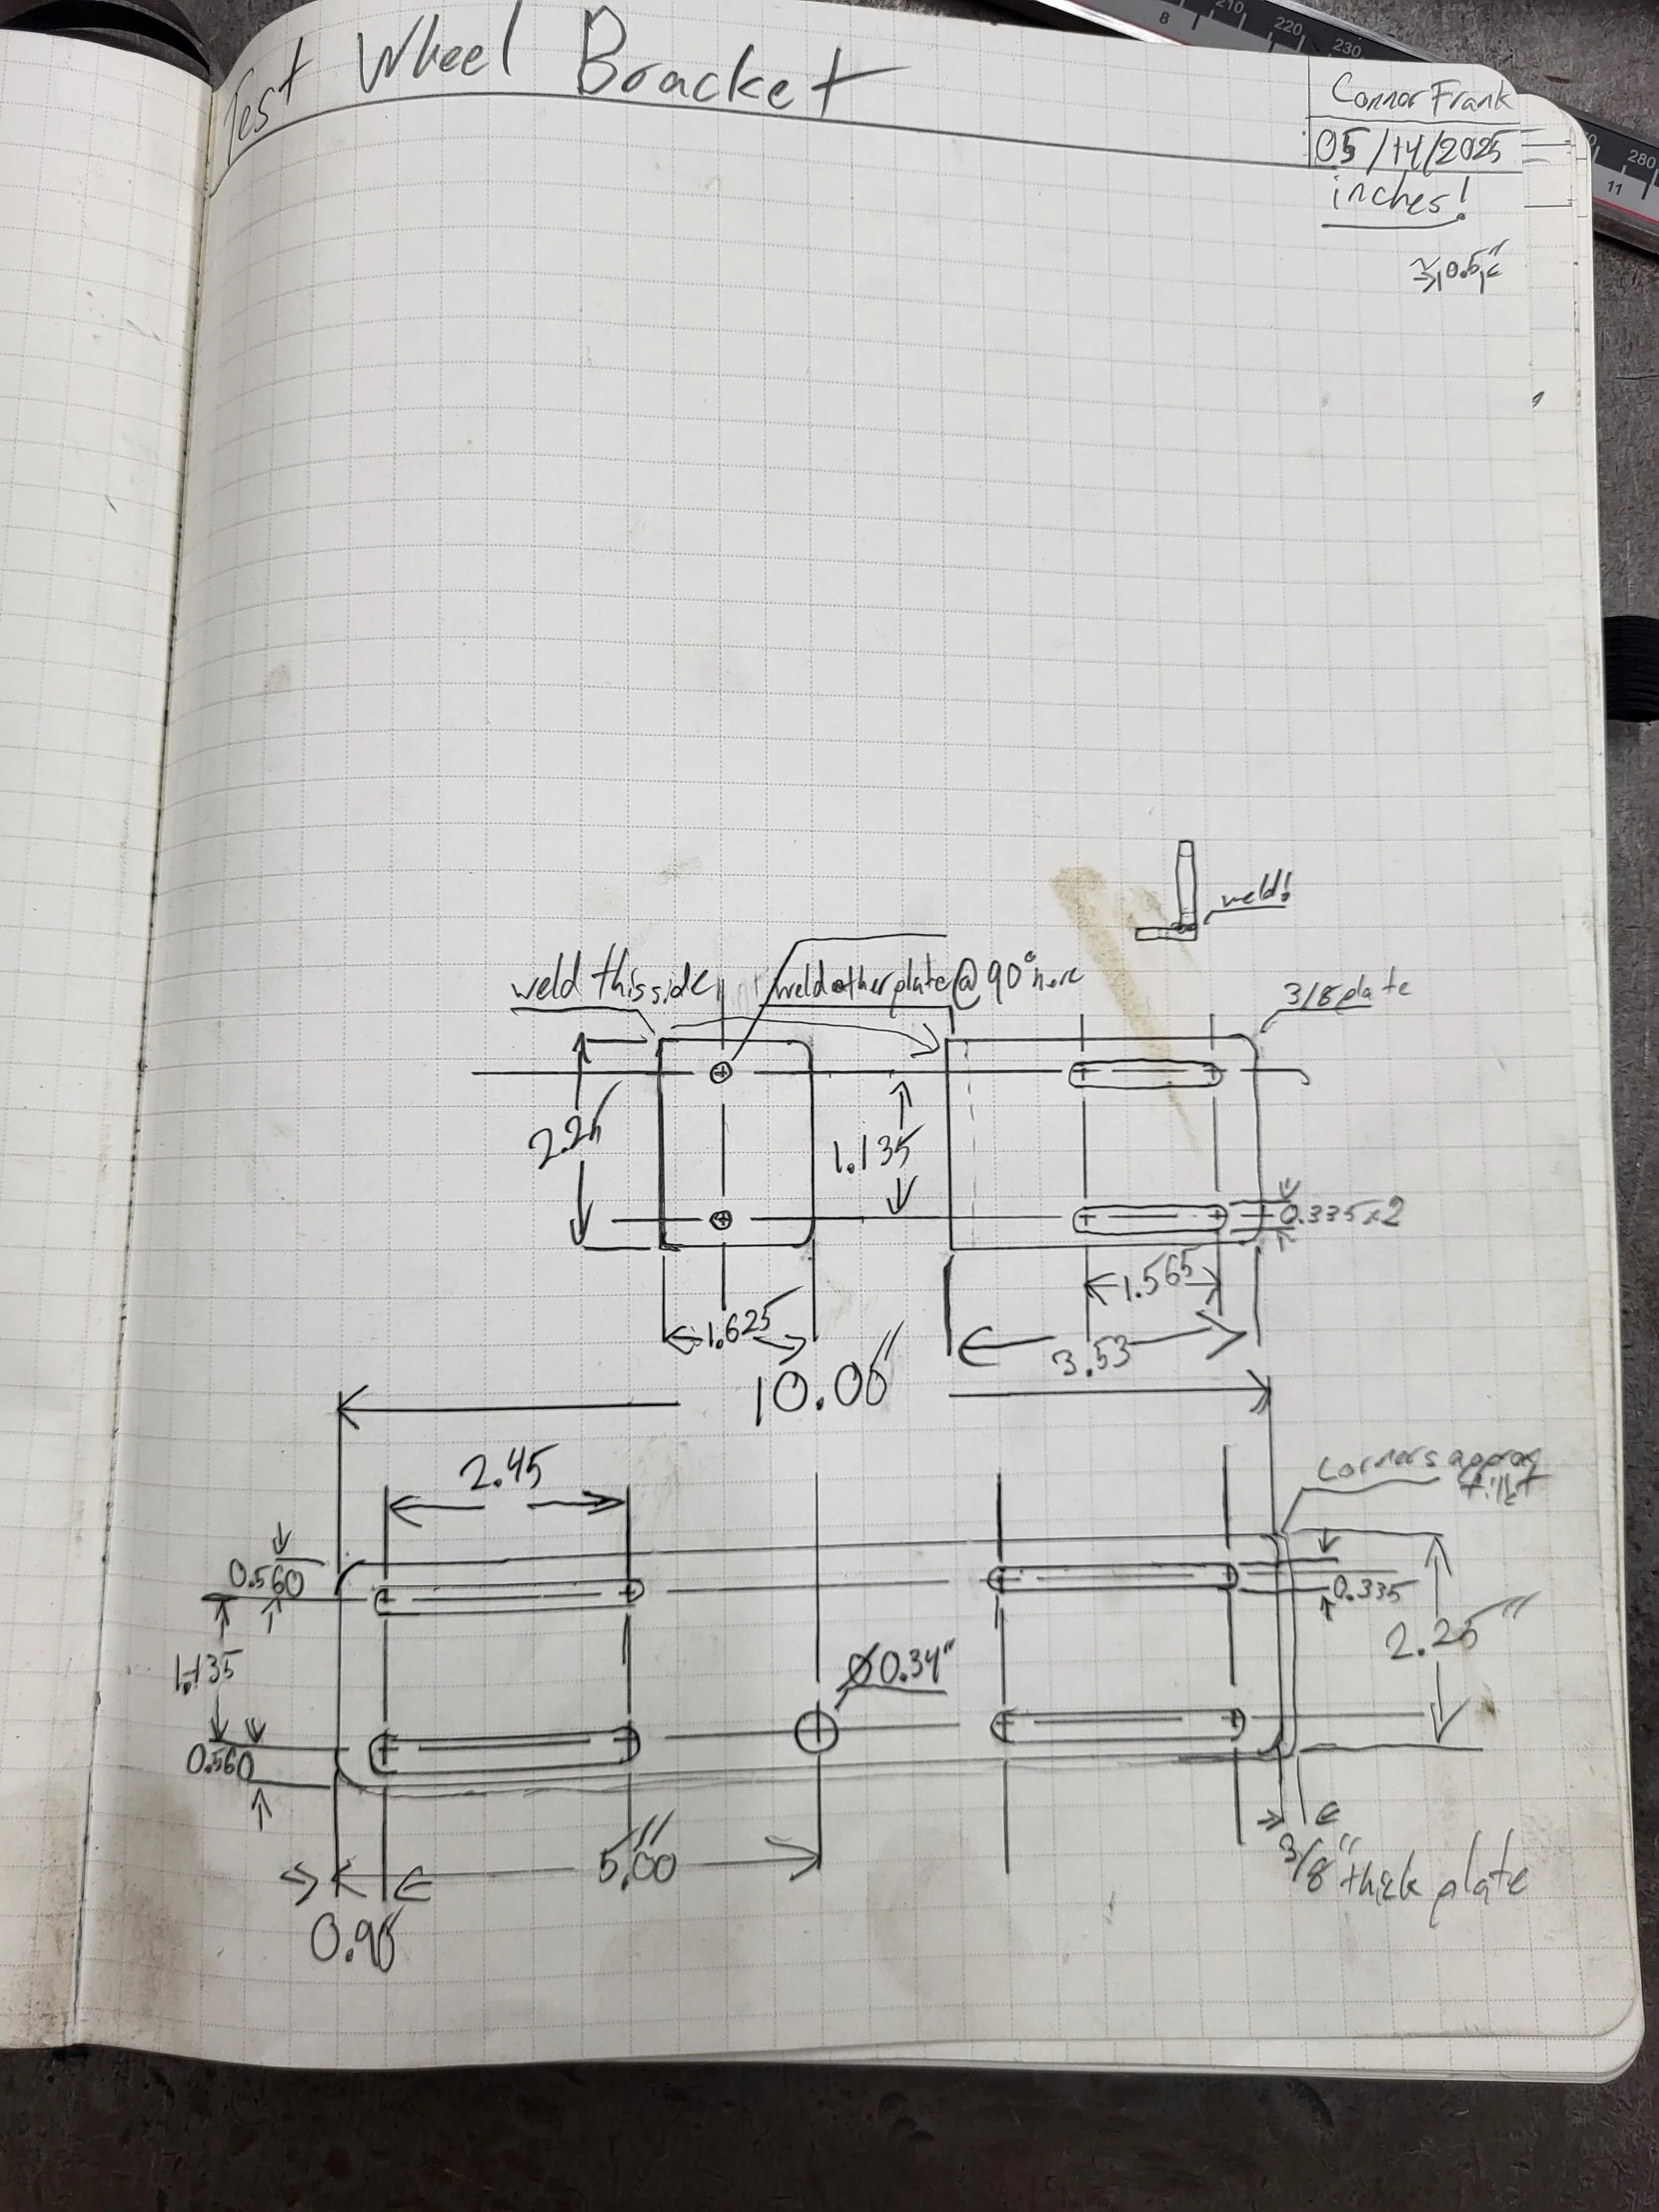 Test Wheel Bracket
Connor Frank
05/14/2025
inches!
210
220
230
8
280
11
weld!
weld this side
weld other plate @ 90° here
3/8 plate
2.25
1.135
0.335x2
1.565
1.625
3.53
10.00"
2.45
corners approx
fillet
0.560
0.335
1.135
2.25"
Ø0.34"
0.560
5.00"
3/8" thick plate